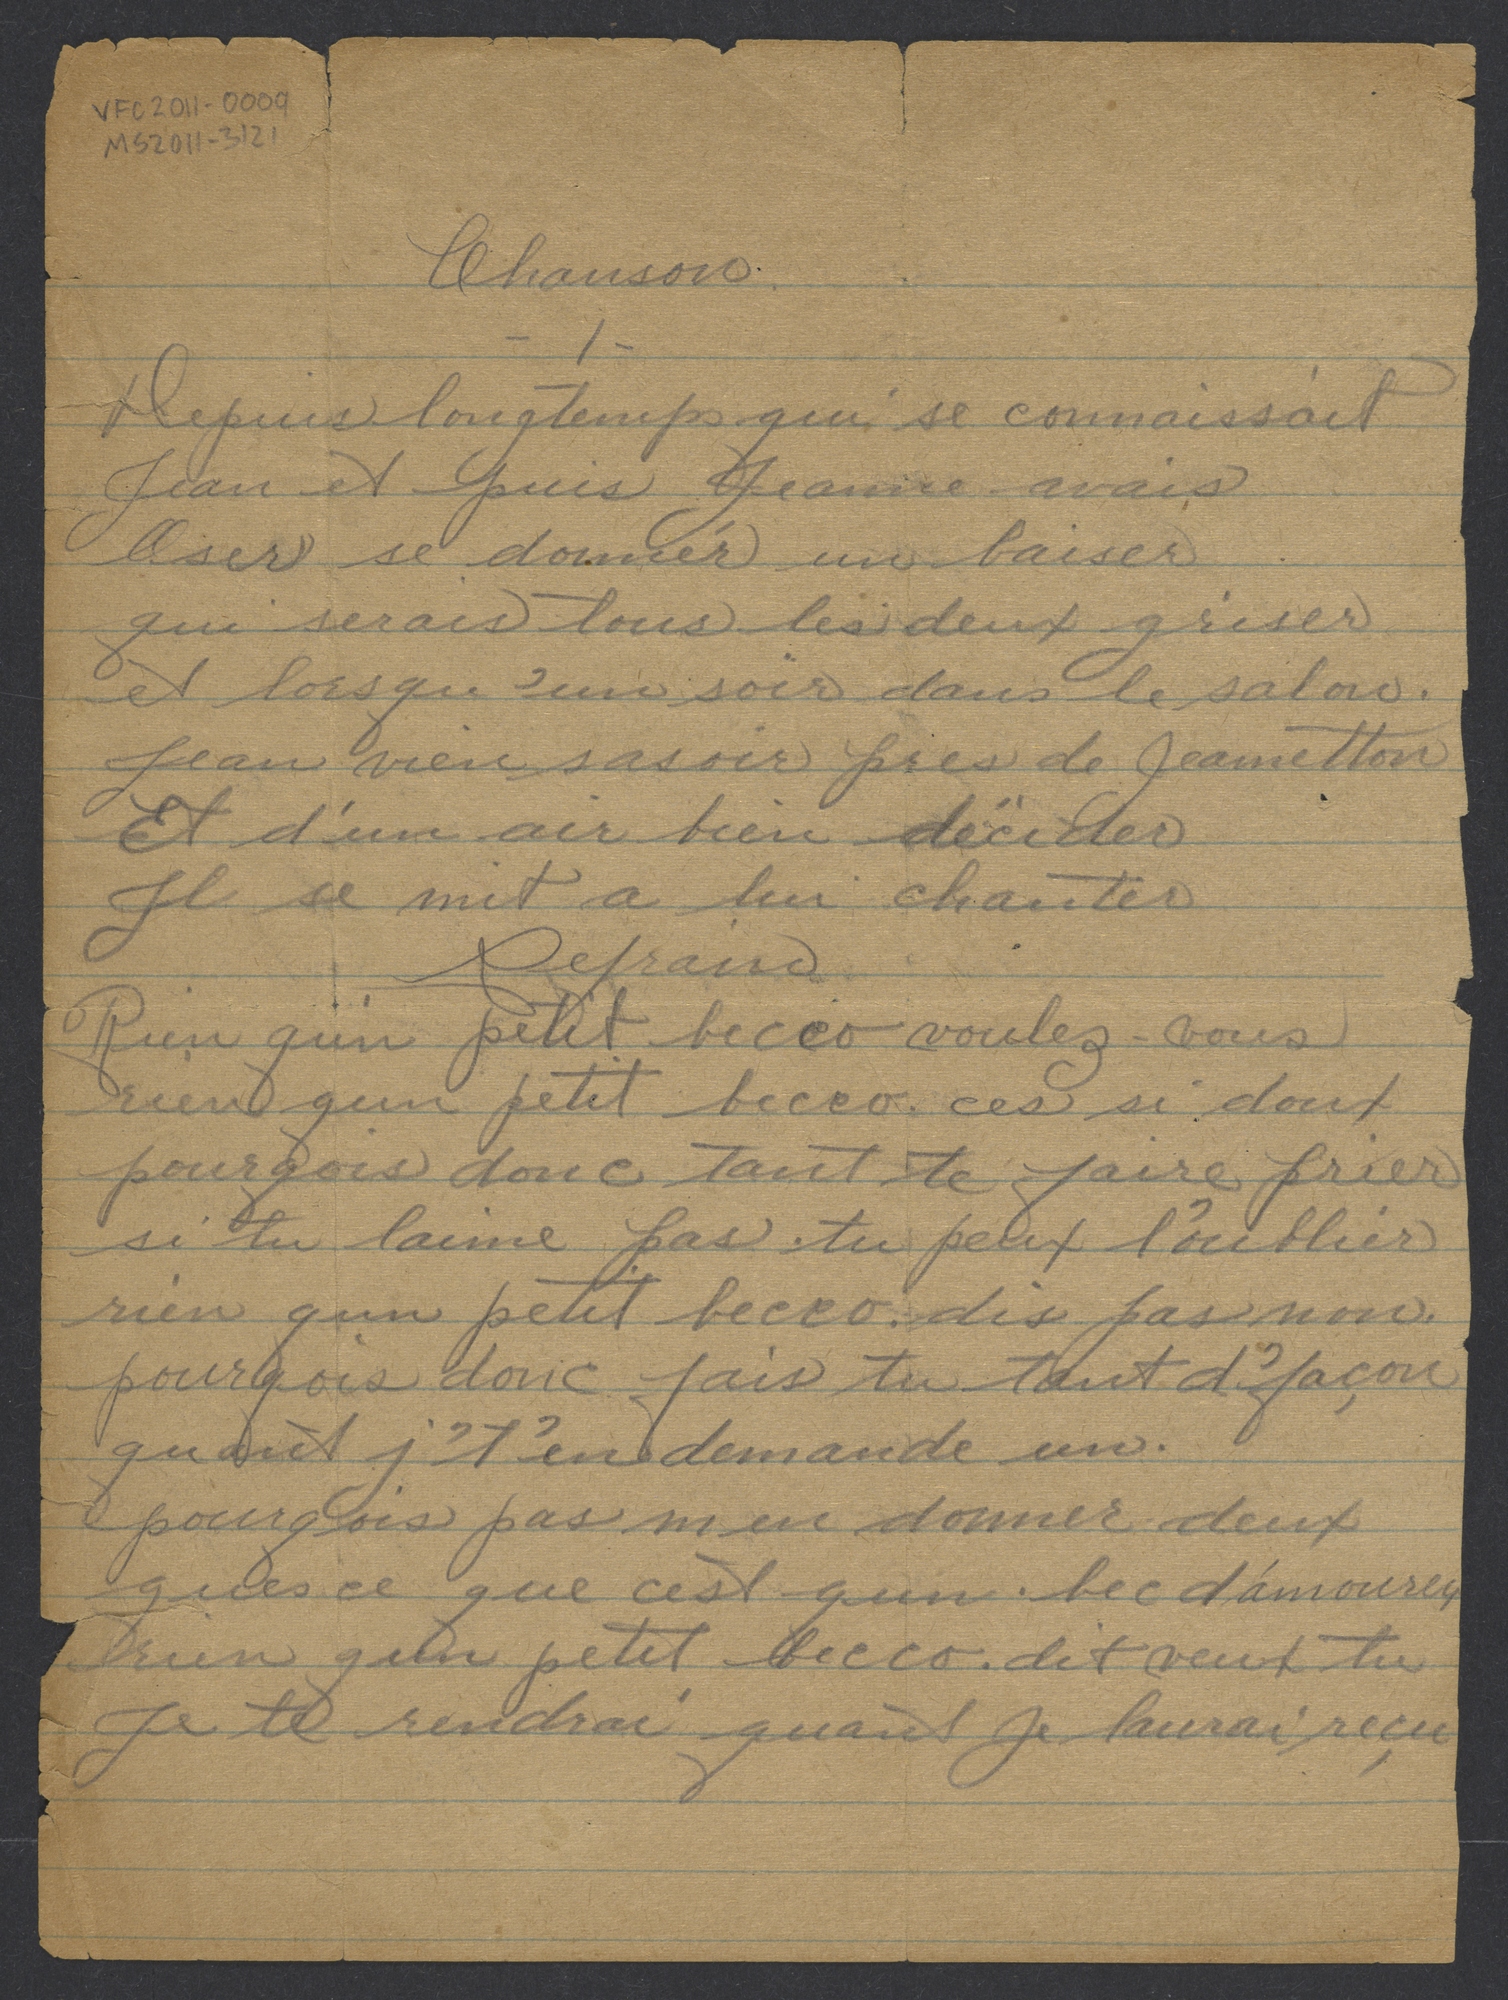 VFC2011-0009
MS2011-3121
Chanson.
- 1 -
Depuis longtemps qui se connaissait
Jean et puis Jeanne avais
Oser se donner un baiser
qui serais tous les deux griser
et lorsqu'un soir dans le salon.
Jean vien sasoir pres de Jeanetton
Et d'un air bien décider
Il se mit a lui chanter
Refrain
Rien qu'in petit becco voulez-vous
rien qun petit becco. ces si doux
pourqois donc tant te faire prier
si tu laime pas. tu peux l'oublier
rien qun petit becco. dis pas non.
pourqois donc fais tu tant d'façon
quant j't'en demande un.
pourqois pas men donner deux
quesce que cest qun. bec d'amoureu
rien qun petit becco. dit veux tu
Je te rendrai quant je laurai reçu